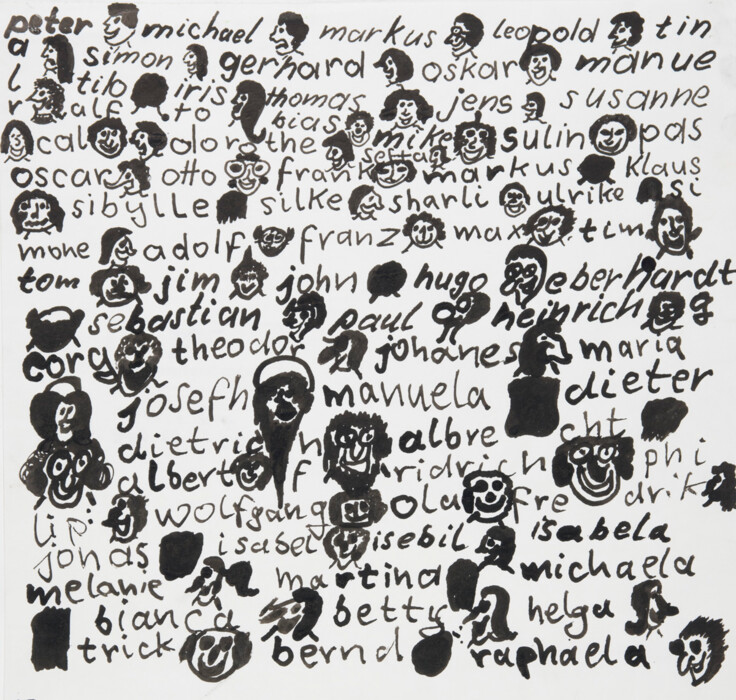 peter michael markus leopold tin
a simon gerhard oskar manue
l tilo iris thomas jens susanne
r alf to bias
cal olor the mike sulin pas
oscar otto frank markus klaus
sibylle silke sharli ulrike si
mone adolf franz max tim
tom jim john hugo eberhardt
sebastian paul heinrich g
corg theodor johanes maria
josefh manuela dieter
dietrich h albre cht
albert f ridrich phi
lipi wolfgang ola fre drik
jonas isabel isebil isabela
melanie martina michaela
bianca betty helga
trick bernd raphaela